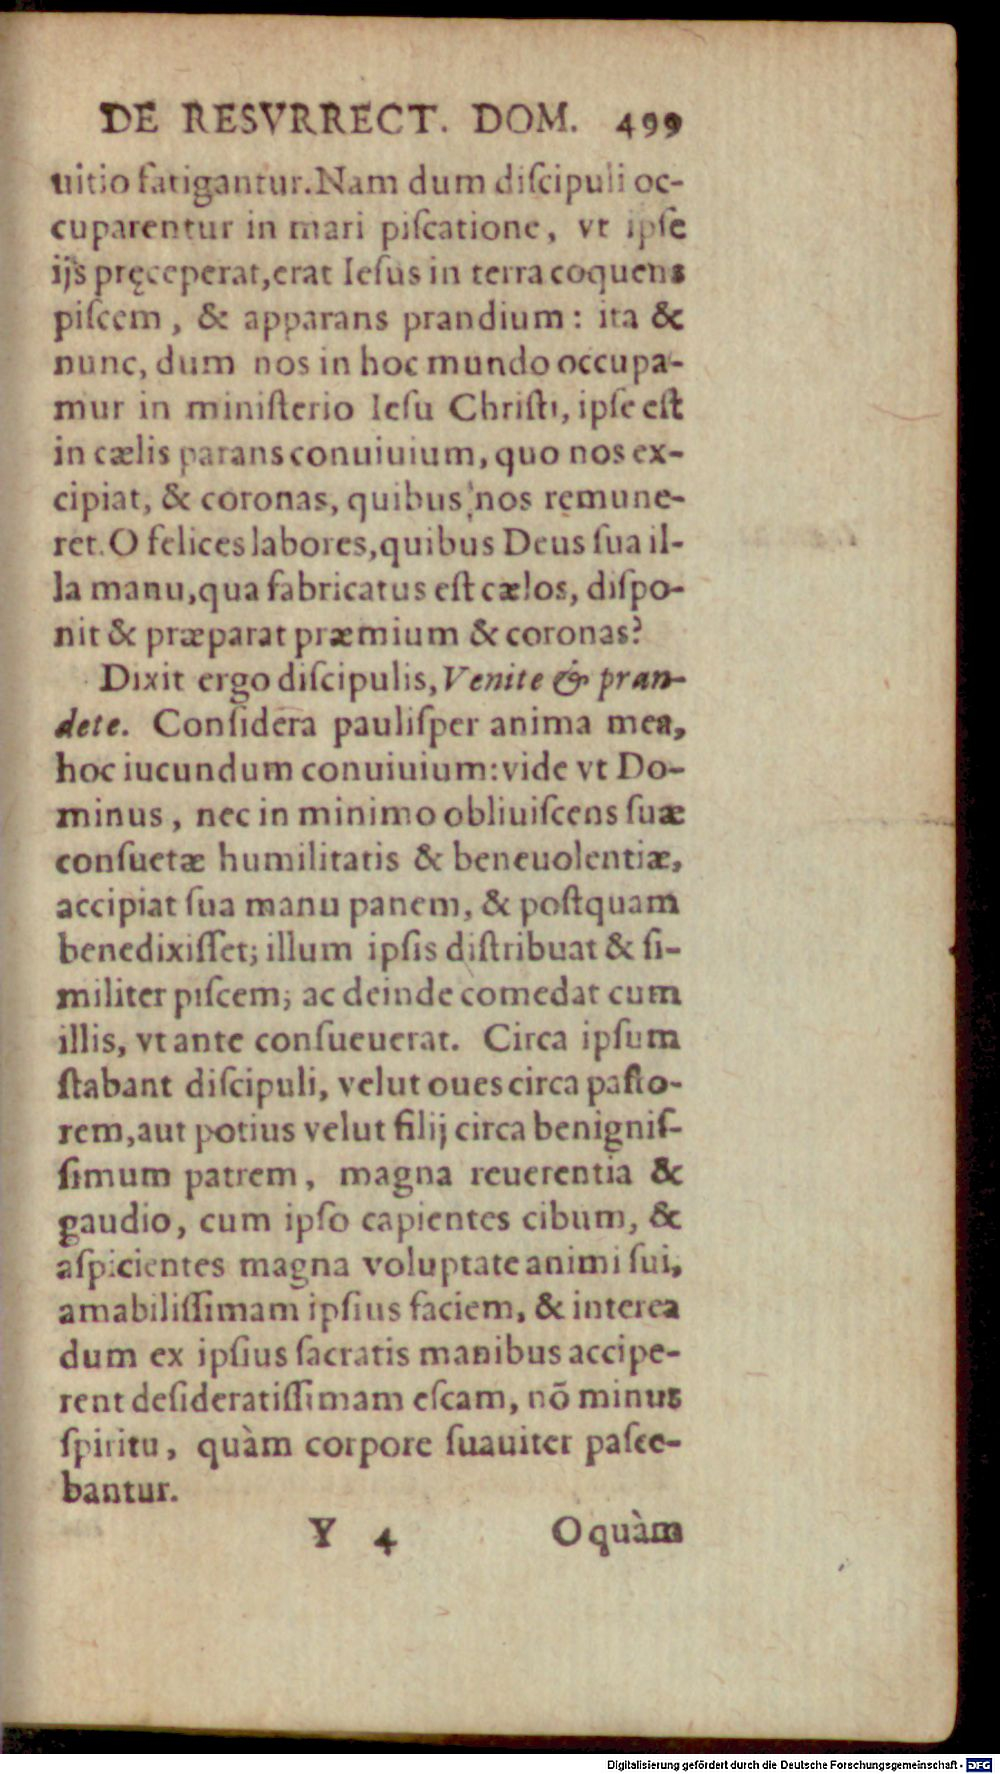 DE RESVRRECT. DOM. 499
uitio fatigantur. Nam dum diſcipuli oc-
cuparentur in mari piſcatione, vt ipſe
ijs pręceperat, erat Ieſus in terra coquens
piſcem, & apparans prandium: ita &
nunc, dum nos in hoc mundo occupa-
mur in miniſterio Ieſu Chriſti, ipſe eſt
in cælis parans conuiuium, quo nos ex-
cipiat, & coronas, quibus nos remune-
ret. O felices labores, quibus Deus ſua il-
la manu, qua fabricatus eſt cælos, diſpo-
nit & præparat præmium & coronas?
Dixit ergo diſcipulis, Venite & pran-
dete. Conſidera pauliſper anima mea,
hoc iucundum conuiuium: vide vt Do-
minus, nec in minimo obliuiſcens ſuæ
conſuetæ humilitatis & beneuolentiæ,
accipiat ſua manu panem, & poſtquam
benedixiſſet; illum ipſis diſtribuat & ſi-
militer piſcem; ac deinde comedat cum
illis, vt ante conſueuerat. Circa ipſum
ſtabant diſcipuli, velut oues circa paſto-
rem, aut potius velut filij circa benigniſ-
ſimum patrem, magna reuerentia &
gaudio, cum ipſo capientes cibum, &
aſpicientes magna voluptate animi ſui,
amabiliſſimam ipſius faciem, & interea
dum ex ipſius ſacratis manibus accipe-
rent deſideratiſſimam eſcam, nõ minus
ſpiritu, quàm corpore ſuauiter paſce-
bantur.
Y 4 O quàm
Digitalisierung gefördert durch die Deutsche Forschungsgemeinschaft - DFG